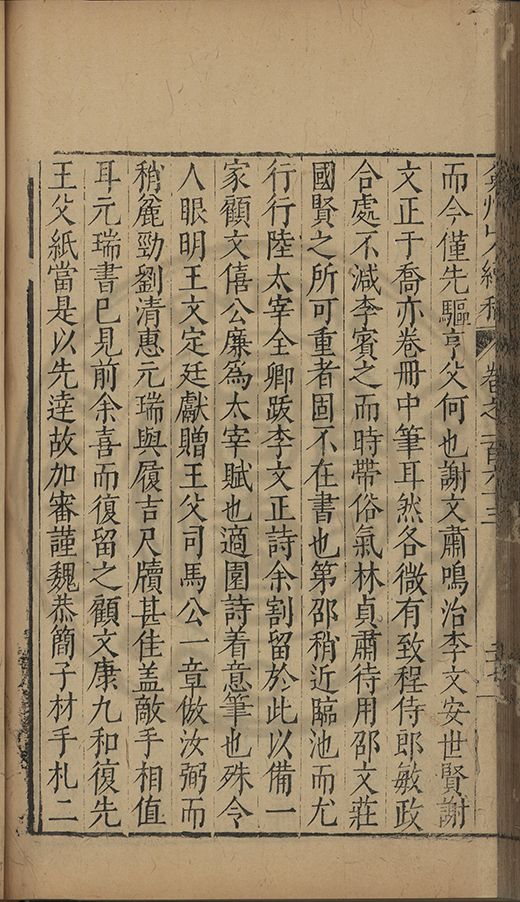 弇州山人續稿 卷之一百六十三
而今僅先驅亨父何也謝文肅鳴治李文安世賢謝
文正于喬亦卷冊中筆耳然各微有致程侍郎敏政
合處不減李賓之而時帶俗氣林貞肅待用邵文莊
國賢之所可重者固不在書也第邵稍近臨池而尤
行行陸太宰全卿䟦李文正詩余割留於此以備一
家顧文僖公廉為太宰賦也適園詩着意筆也殊令
人眼明王文定廷獻贈王父司馬公一章倣汝弼而
稍麄勁劉清惠元瑞與履吉尺牘甚佳盖敵手相值
耳元瑞書已見前余喜而復留之顧文康九和復先
王父紙當是以先逹故加審謹魏恭簡子材手札二